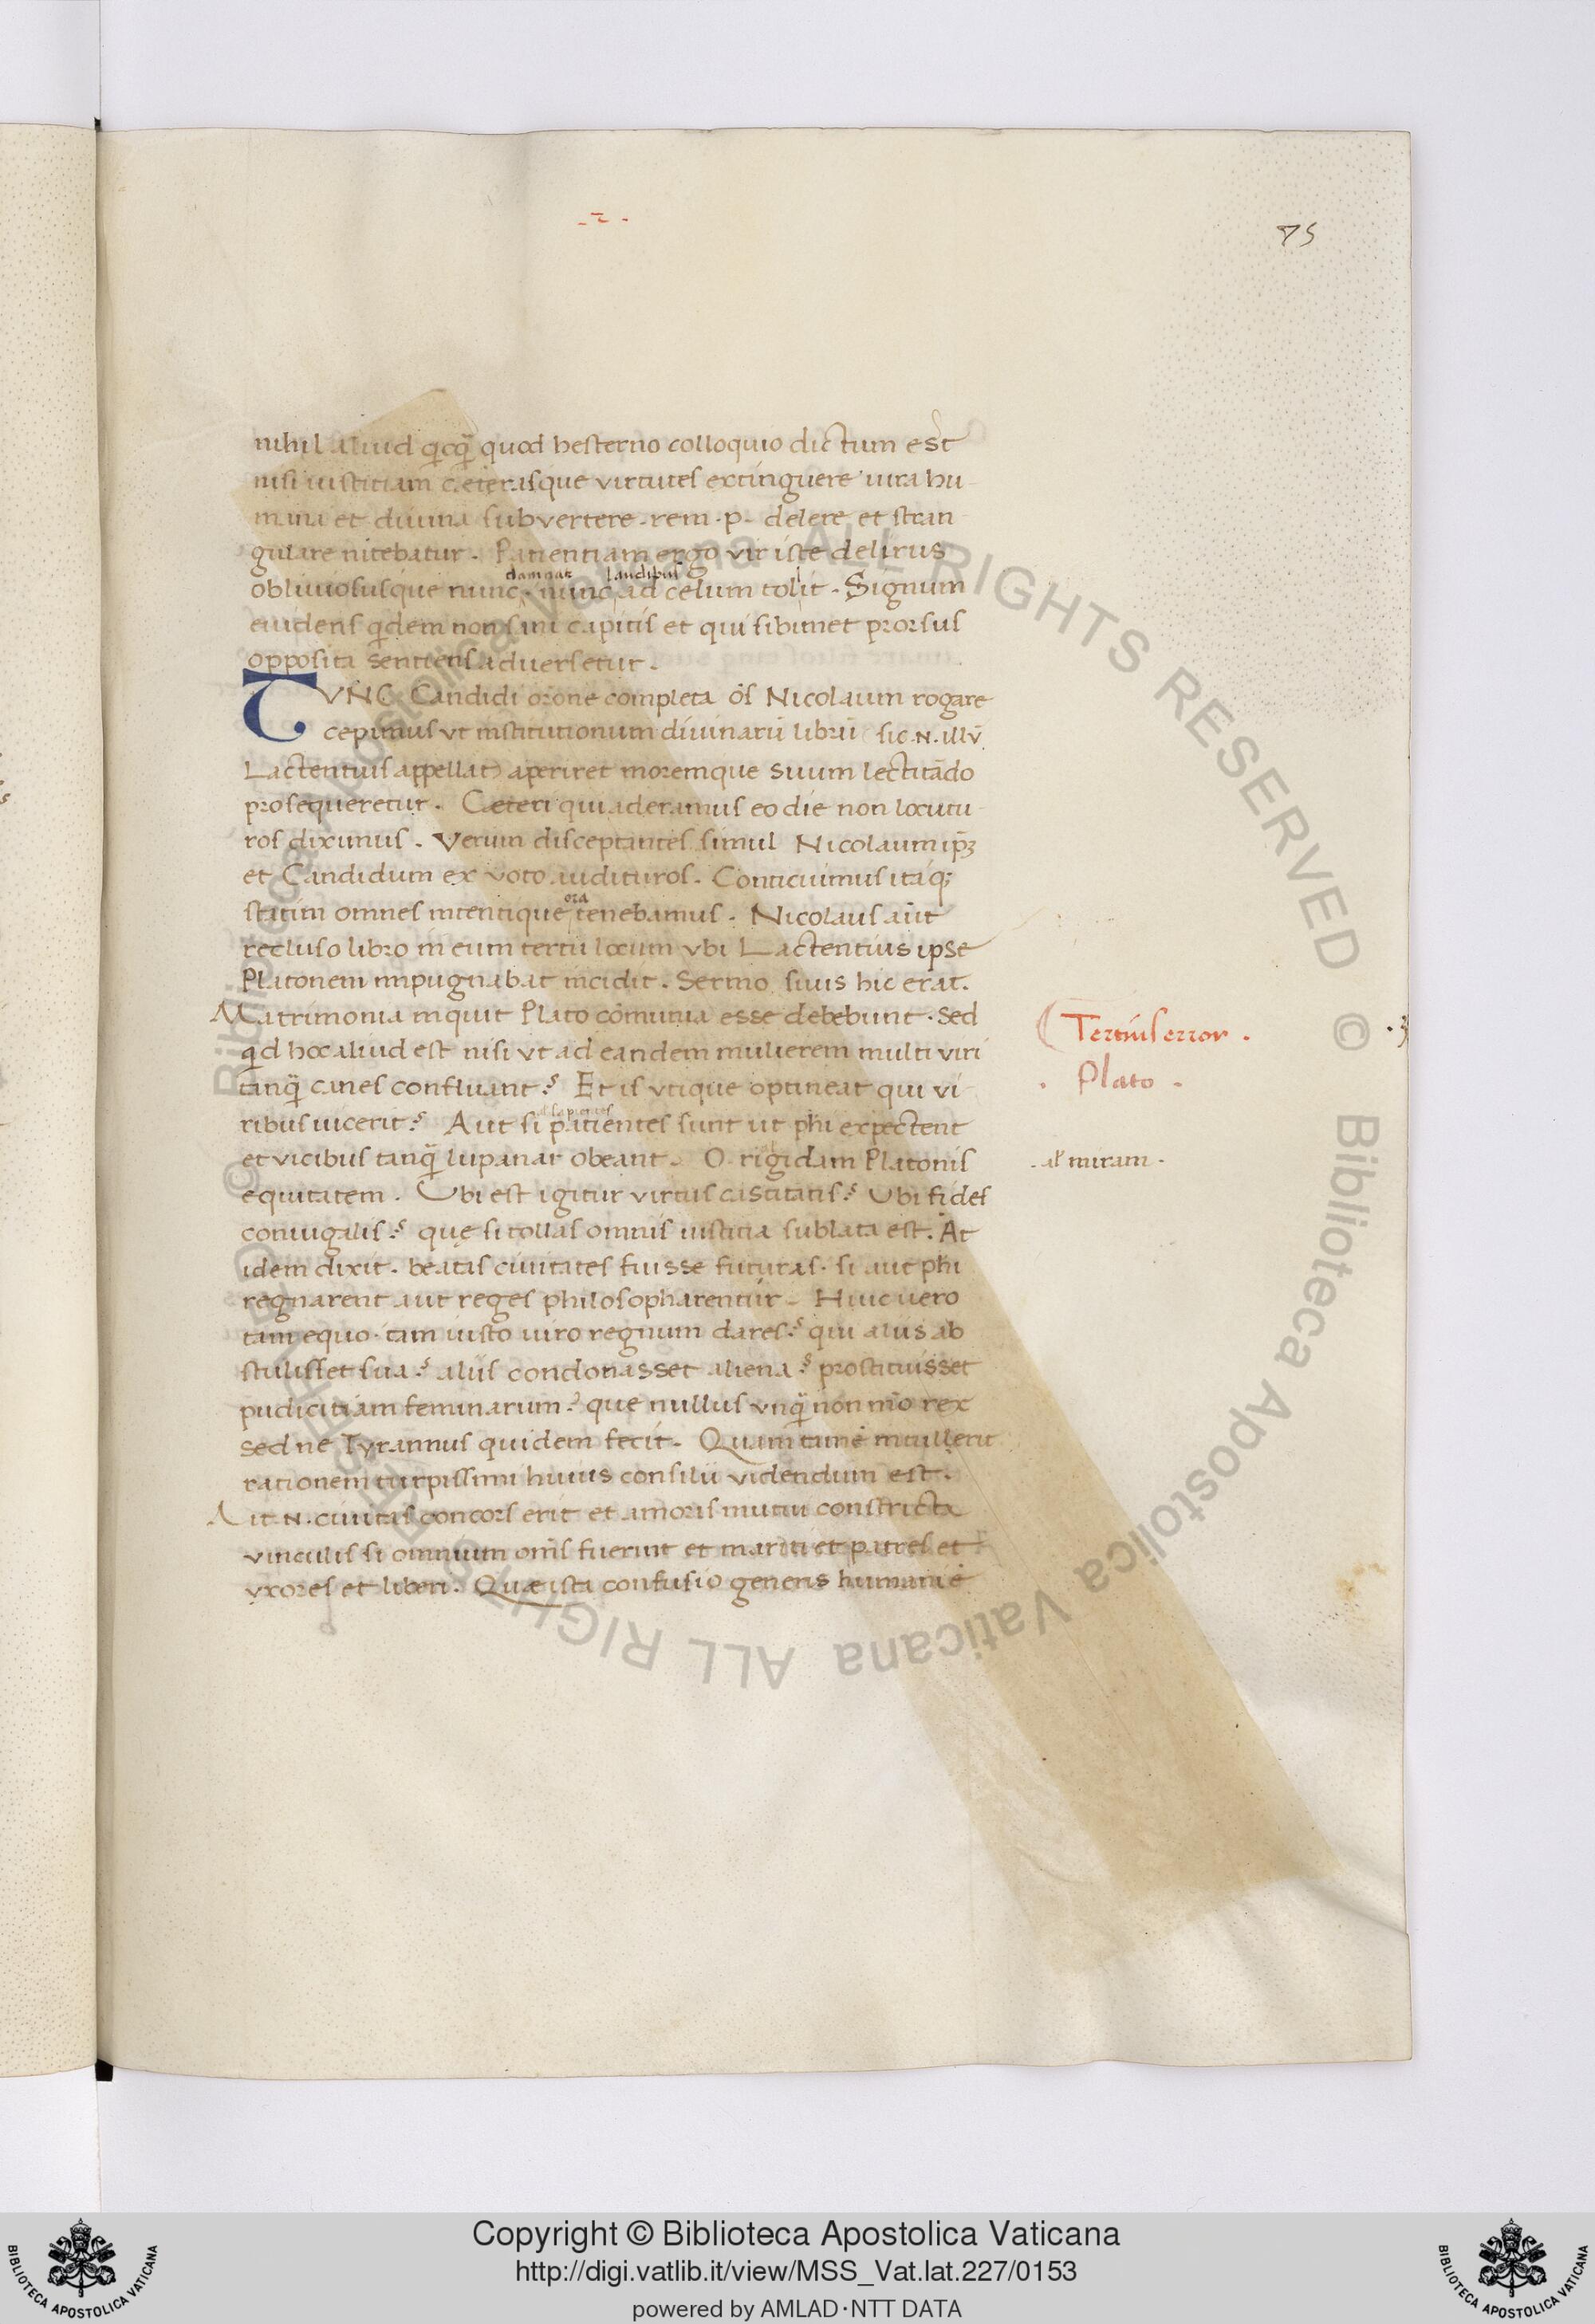 75
nihil aliud q̄cq̄ quod hesterno colloquio dictum est
nisi iustitiam ceterasque virtutes extinguere iura hu
mana et diuina subvertere . rem . p . delere et stran
gulare nitebatur . Patientiam ergo vir iste delirus
damnat laudibus
obliuiosusque nunc . nunc ad celum tolit . Signum
euidens q̄dem non sani capitis et qui sibimet prorsus
opposita sentiens aduersetur .
TVNC Candidi orōne completa ōs Nicolaum rogare
cepimus vt institutionum diuinarū librū sic . N . illū
Lactentius appellat) aperiret moremque suum lectitādo
prosequeretur . Cæteri qui aderamus eo die non locutu
ros diximus . Verum disceptantes simul Nicolaum ip̄ȝ
et Candidum ex voto audituros . Conticuimus itaq;
ora
statim omnes intentique tenebamus . Nicolaus aūt
recluso libro in eum tertii locum vbi Lactentius ipse
Platonem impugnabat incidit . Sermo suus hic erat .
Matrimonia inquit Plato cōmunia esse debebunt . Sed
q̄d hoc aliud est nisi vt ad eandem mulierem multi viri
tanq̄ canes confluant ? Et is vtique optineat qui vi
al sapientes
ribus uicerit ? Aut si patientes sunt ut phi expectent
et vicibus tanq̄ lupanar obeant . O rigidam Platonis
equitatem . Vbi est igitur virtus castitatis ? Vbi fides
coniugalis ? quę si tollas omnis iustitia sublata est . At
idem dixit . beatas ciuitates fuisse futuras . si aut phi
regnarent aut reges philosopharentur . Huic uero
tam equo . tam iusto uiro regnum dares ? qui aliis ab
stulisset sua ? aliis condonasset aliena ? prostituisset
pudicitiam feminarum ? que nullus vnq̄ non mō rex
sed ne Tyrannus quidem fecit . Quam tamē intullerit
rationem turpissimi huius consilii videndum est .
Ait . N . ciuitas concors erit et amoris mutui constricta
vinculis si omnium om̄s fuerint et mariti et patres et
vxores et liberi . Quæ ista confusio generis humani ē
Tertius error .
. Plato .
. al' miram .
Copyright © Biblioteca Apostolica Vaticana
http://digi.vatlib.it/view/MSS_Vat.lat.227/0153
powered by AMLAD·NTT DATA
© Biblioteca Apostolica Vaticana ALL RIGHTS RESERVED
© Biblioteca Apostolica Vaticana ALL RIGHTS RESERVED
BIBLIOTECA APOSTOLICA VATICANA
BIBLIOTECA APOSTOLICA VATICANA